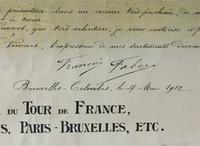 présentera dans un avenir très prochain, de
que très volontiers, je vous autorise à p
l'expression de mes sentiments
François Faber
Bruxelles-Colombes, le 4 Mars 1912
DU TOUR DE FRANCE,
S, PARIS-BRUXELLES, ETC.